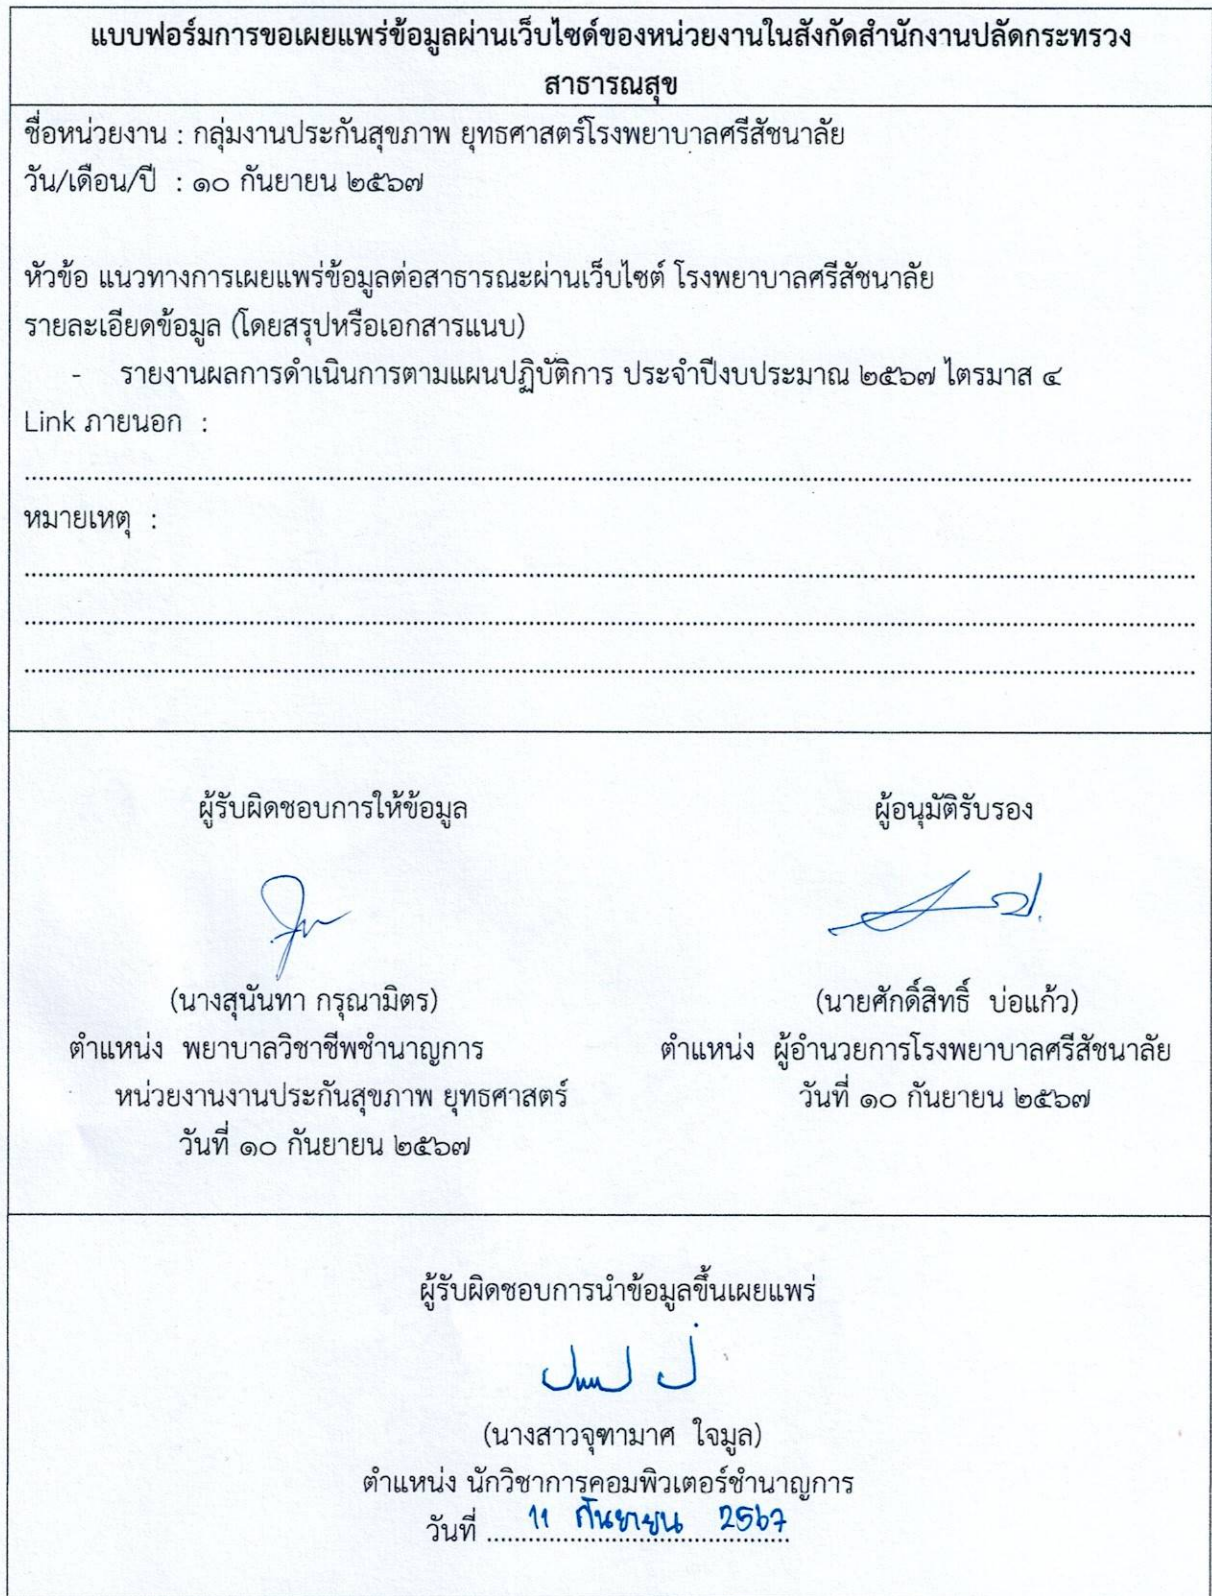 แบบฟอร์มการขอเผยแพร่ข้อมูลผ่านเว็บไซด์ของหน่วยงานในสังกัดสำนักงานปลัดกระทรวง
สาธารณสุข
ชื่อหน่วยงาน : กลุ่มงานประกันสุขภาพ ยุทธศาสตร์โรงพยาบาลศรีสัชนาลัย
วัน/เดือน/ปี : ๑๐ กันยายน ๒๕๖๗
หัวข้อ แนวทางการเผยแพร่ข้อมูลต่อสาธารณะผ่านเว็บไซต์ โรงพยาบาลศรีสัชนาลัย
รายละเอียดข้อมูล (โดยสรุปหรือเอกสารแนบ)
- รายงานผลการดำเนินการตามแผนปฏิบัติการ ประจำปีงบประมาณ ๒๕๖๗ ไตรมาส ๔
Link ภายนอก :
หมายเหตุ :
ผู้รับผิดชอบการให้ข้อมูล
(นางสุนันทา กรุณามิตร)
ตำแหน่ง พยาบาลวิชาชีพชำนาญการ
หน่วยงานงานประกันสุขภาพ ยุทธศาสตร์
วันที่ ๑๐ กันยายน ๒๕๖๗
ผู้อนุมัติรับรอง
(นายศักดิ์สิทธิ์ บ่อแก้ว)
ตำแหน่ง ผู้อำนวยการโรงพยาบาลศรีสัชนาลัย
วันที่ ๑๐ กันยายน ๒๕๖๗
ผู้รับผิดชอบการนำข้อมูลขึ้นเผยแพร่
(นางสาวจุฑามาศ ใจมูล)
ตำแหน่ง นักวิชาการคอมพิวเตอร์ชำนาญการ
วันที่ 11 กันยายน 2567